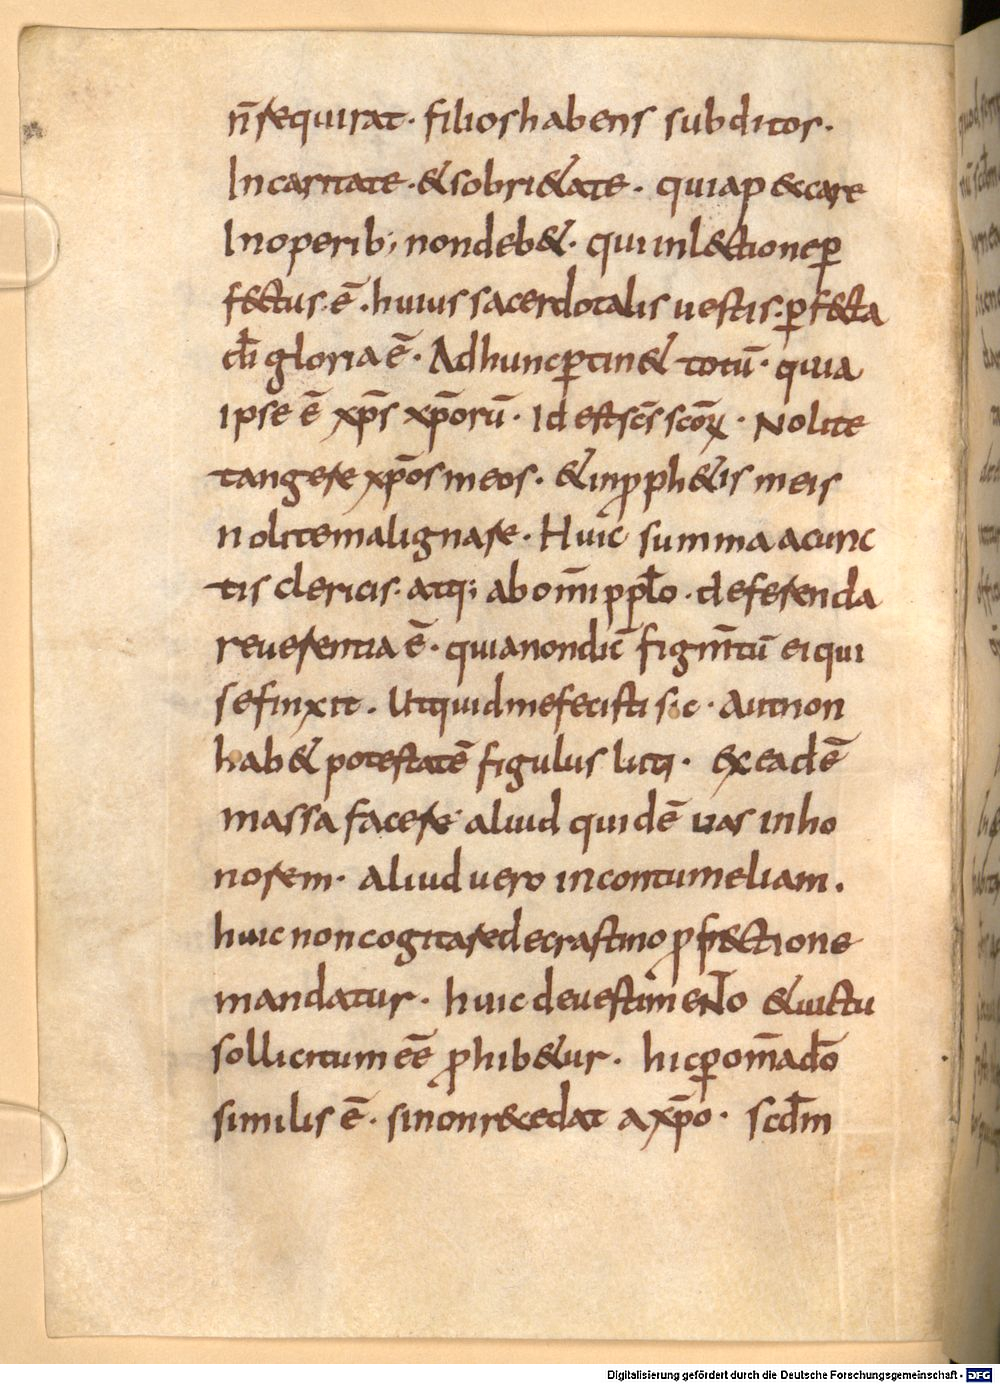 n̄ sequirat · filios habens subditos ·
In caritate · & sobri&ate · quia p&care
In operib; non deb& · qui in l&ctione ꝑ
f&ctus · ē · huius sacerdotalis uestis · ꝑf&cta
dī gloria ē · Ad hunc ꝑtin& totū · quia
ipse ē xp̄s xp̄orū · Id est sc̄s sc̄oꝝ · Nolite
tangere xp̄os meos · & in ꝓph&is meis
nolite malignare · Huic summa a cunc
tis clericis · atq; ab om̄i pp̄lo · deferenda
reuerentia ē · quia non dic̄ figm̄tū ei qui
se finxit · Ut quid me fecisti sic · Aut non
hab& potestatē figulus luti · ex eadē
massa facere aliud quidē uas in ho
norem · aliud uero in contumeliam ·
huic non cogitare de crastino ꝓf&ctione
mandatur · huic de uestimento & uictu
sollicitum eē̄ ꝓhib&ur · hic ꝑ om̄ia dō
similis ē · si non rec&edat a xp̄o · scd̄m
Digitalisierung gefördert durch die Deutsche Forschungsgemeinschaft - DFG